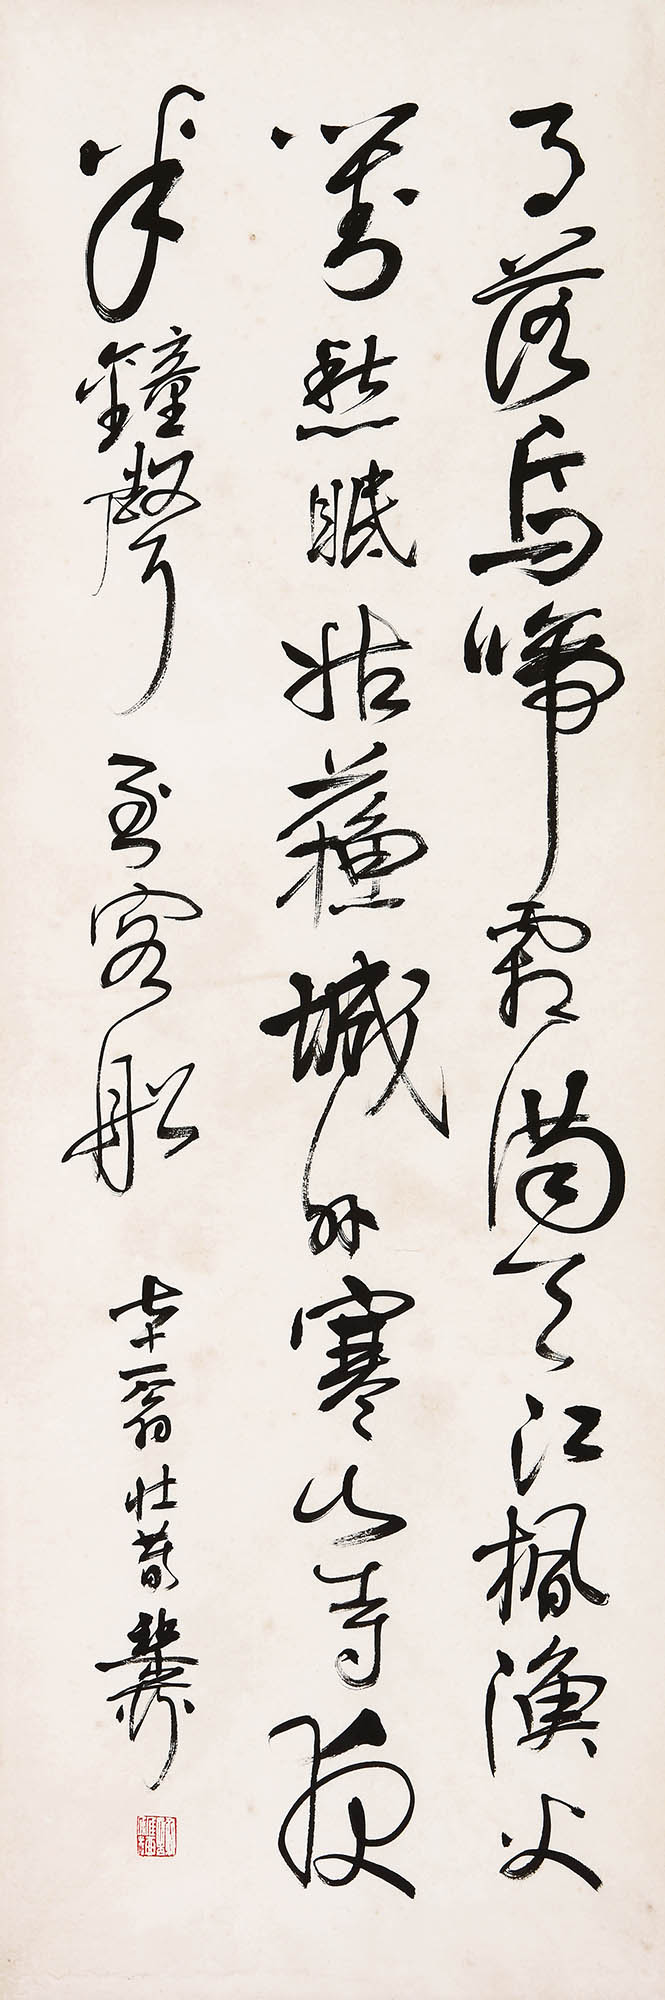 月落烏啼霜滿天江楓漁火
對愁眠姑蘇城外寒山寺夜
半鐘聲到客船 七十一翁壯暮稚柳